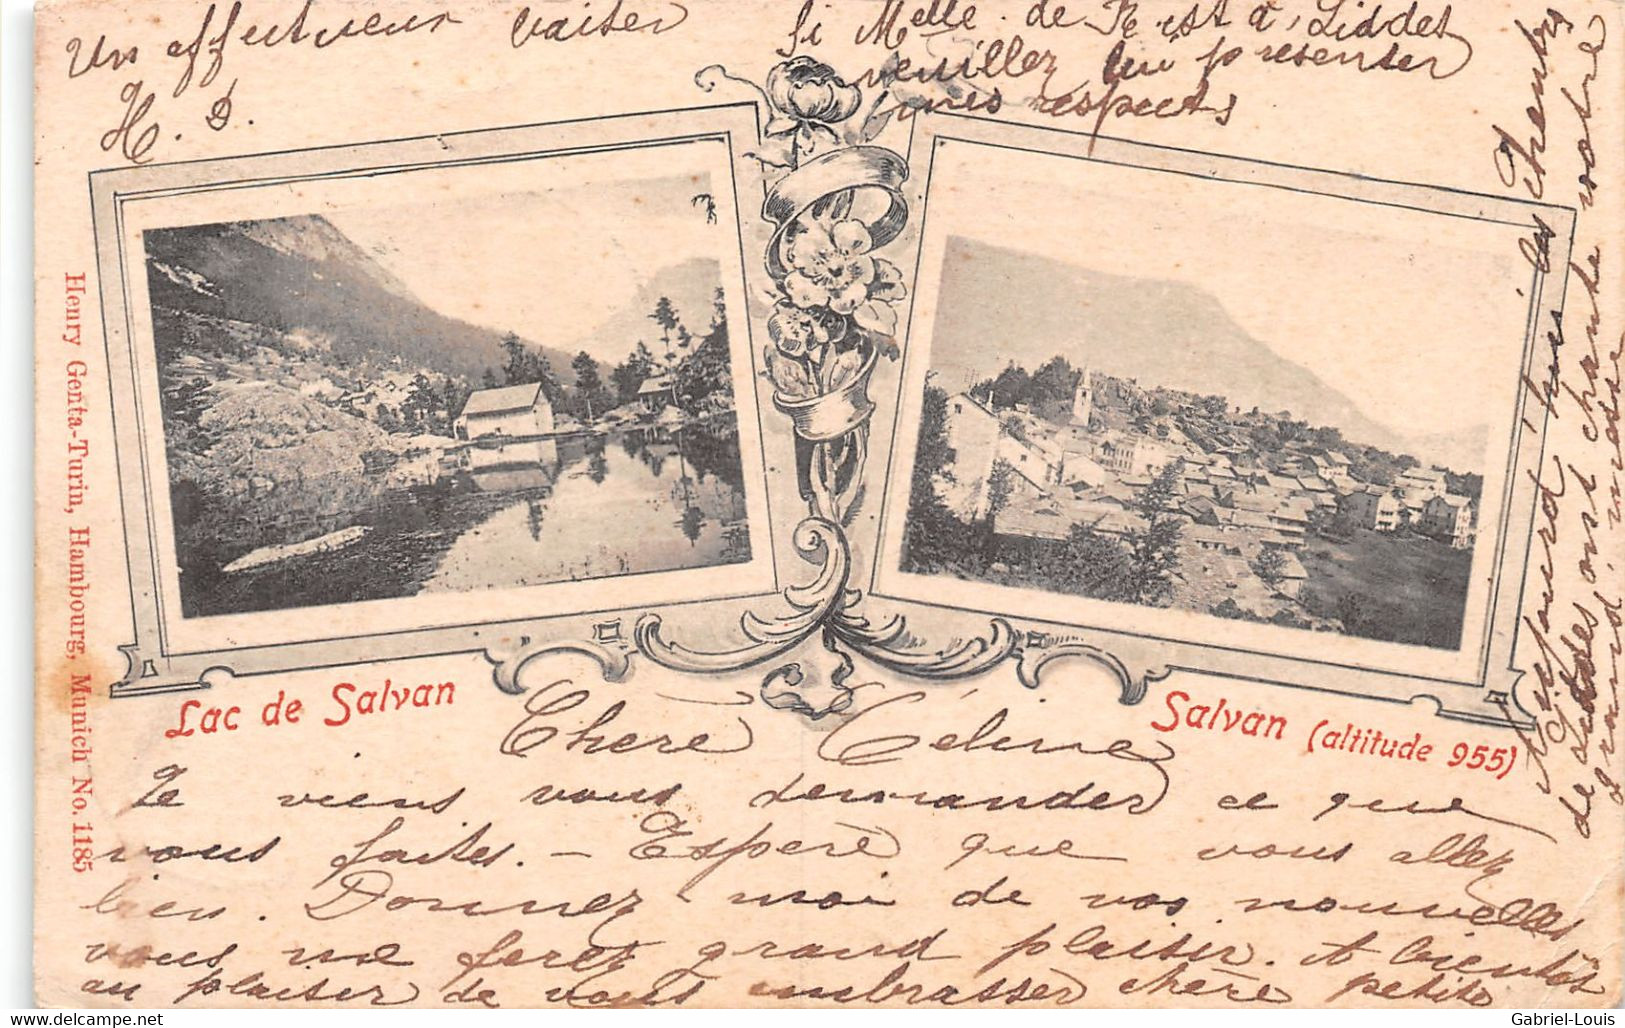 Un affectueux baiser
H. D.
Si Melle de R est à Liddes
veuillez lui présenter
mes respects
Henry Genta-Turin, Hambourg, Munich No. 1185
Lac de Salvan
Salvan (altitude 955)
Chère Céline
Je viens vous demander ce que
vous faites. – Espère que vous allez
bien. Donnez moi de vos nouvelles
vous me ferez grand plaisir. A bientôt
au plaisir de vous embrasser chère petite
Aujourd'hui les Chantres
de Liddes ont chanté notre
grand'messe
Gabriel-Louis